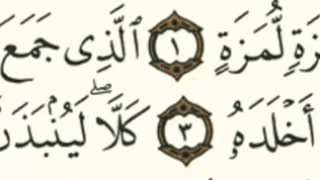 زَةٍ لُّمَزَةٍ ١ ٱلَّذِى جَمَعَ
أَخْلَدَهُۥ ٣ كَلَّا ۖ لَيُنۢبَذَنَّ